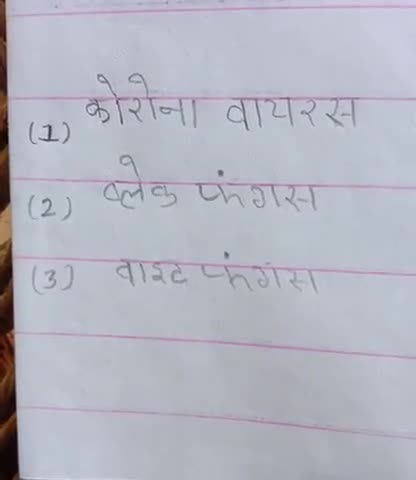 (1) कोरोना वायरस
(2) ब्लेक फंगस
(3) वाइट फंगस